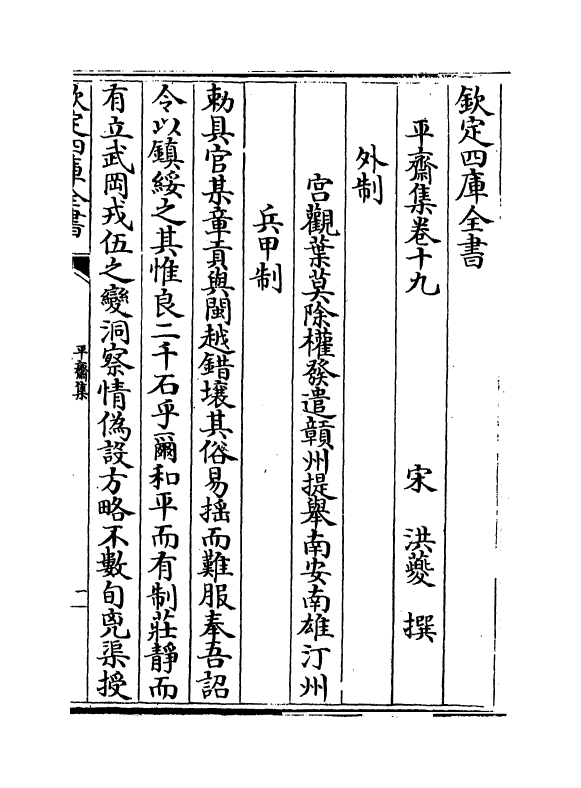 欽定四庫全書
平齋集卷十九
宋　洪夔　撰
外制
宫觀葉莫除權發遣贛州提舉南安南雄汀州
兵甲制
勅具官某章貢與閩越錯壤其俗易揺而難服奉吾詔
令以鎮綏之其惟良二千石乎爾和平而有制莊靜而
有立武岡戎伍之變洞察情偽設方略不數旬兇渠授
欽定四庫全書
平齋集